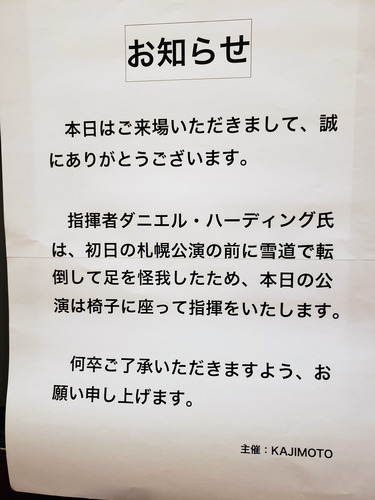 お知らせ
本日はご来場いただきまして、誠
にありがとうございます。
指揮者ダニエル・ハーディング氏
は、初日の札幌公演の前に雪道で転
倒して足を怪我したため、本日の公
演は椅子に座って指揮をいたします。
何卒ご了承いただきますよう、お
願い申し上げます。
主催：KAJIMOTO